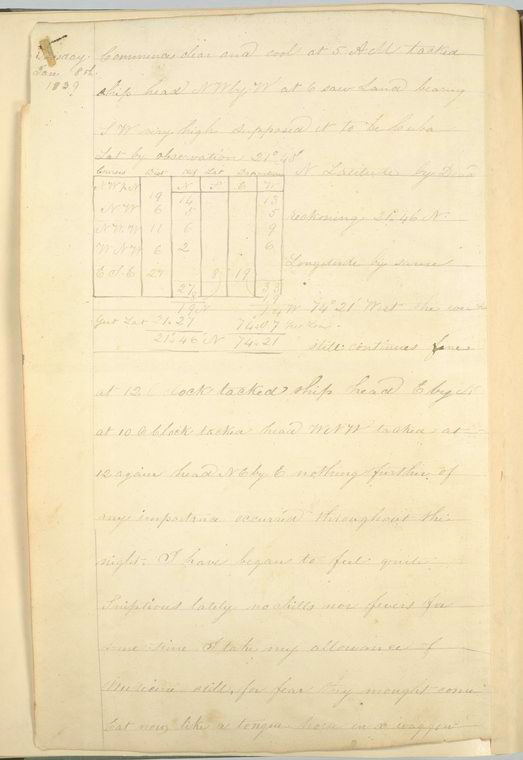 Tuesday
Jan 8th
1839
Commences clear and cool at 5 A M tacked
ship head N W by W at 6 saw Land bearing
S W very high supposed it to be Cuba
Lat by observation 21° 48'
N Latitude by Dead
Courses Dist Dif Lat Departure
N S E W
N W b N 19 14 13
N W 6 5 5
N W W 11 6 9
W N W 6 2 6
E S E 27 8 19
27 33
8 19
19 N 14 W
reckoning 21° 46 N
Longitude by same
74° 21' West the
Yest Lat 21.27 74.07 Yes Lon
21° 46 N 74.21
still continues fine
at 12 O clock tacked ship head E by N
at 10 O Clock tacked head W N W tacked at
12 again head N E by E nothing further of
any importance occurred throughout the
night. I have began to feel quite
Eruptious lately no chills nor fevers for
some time I take my allowance of
still, for fear they mought come
but now like a horse in a waggon